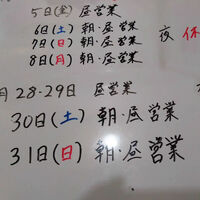 5日(金) 昼営業
6日(土) 朝・昼営業 夜 休
7日(日) 朝・昼営業
8日(月) 朝・昼営業
月 28・29日 昼営業
30日(土) 朝・昼営業
31日(日) 朝・昼営業